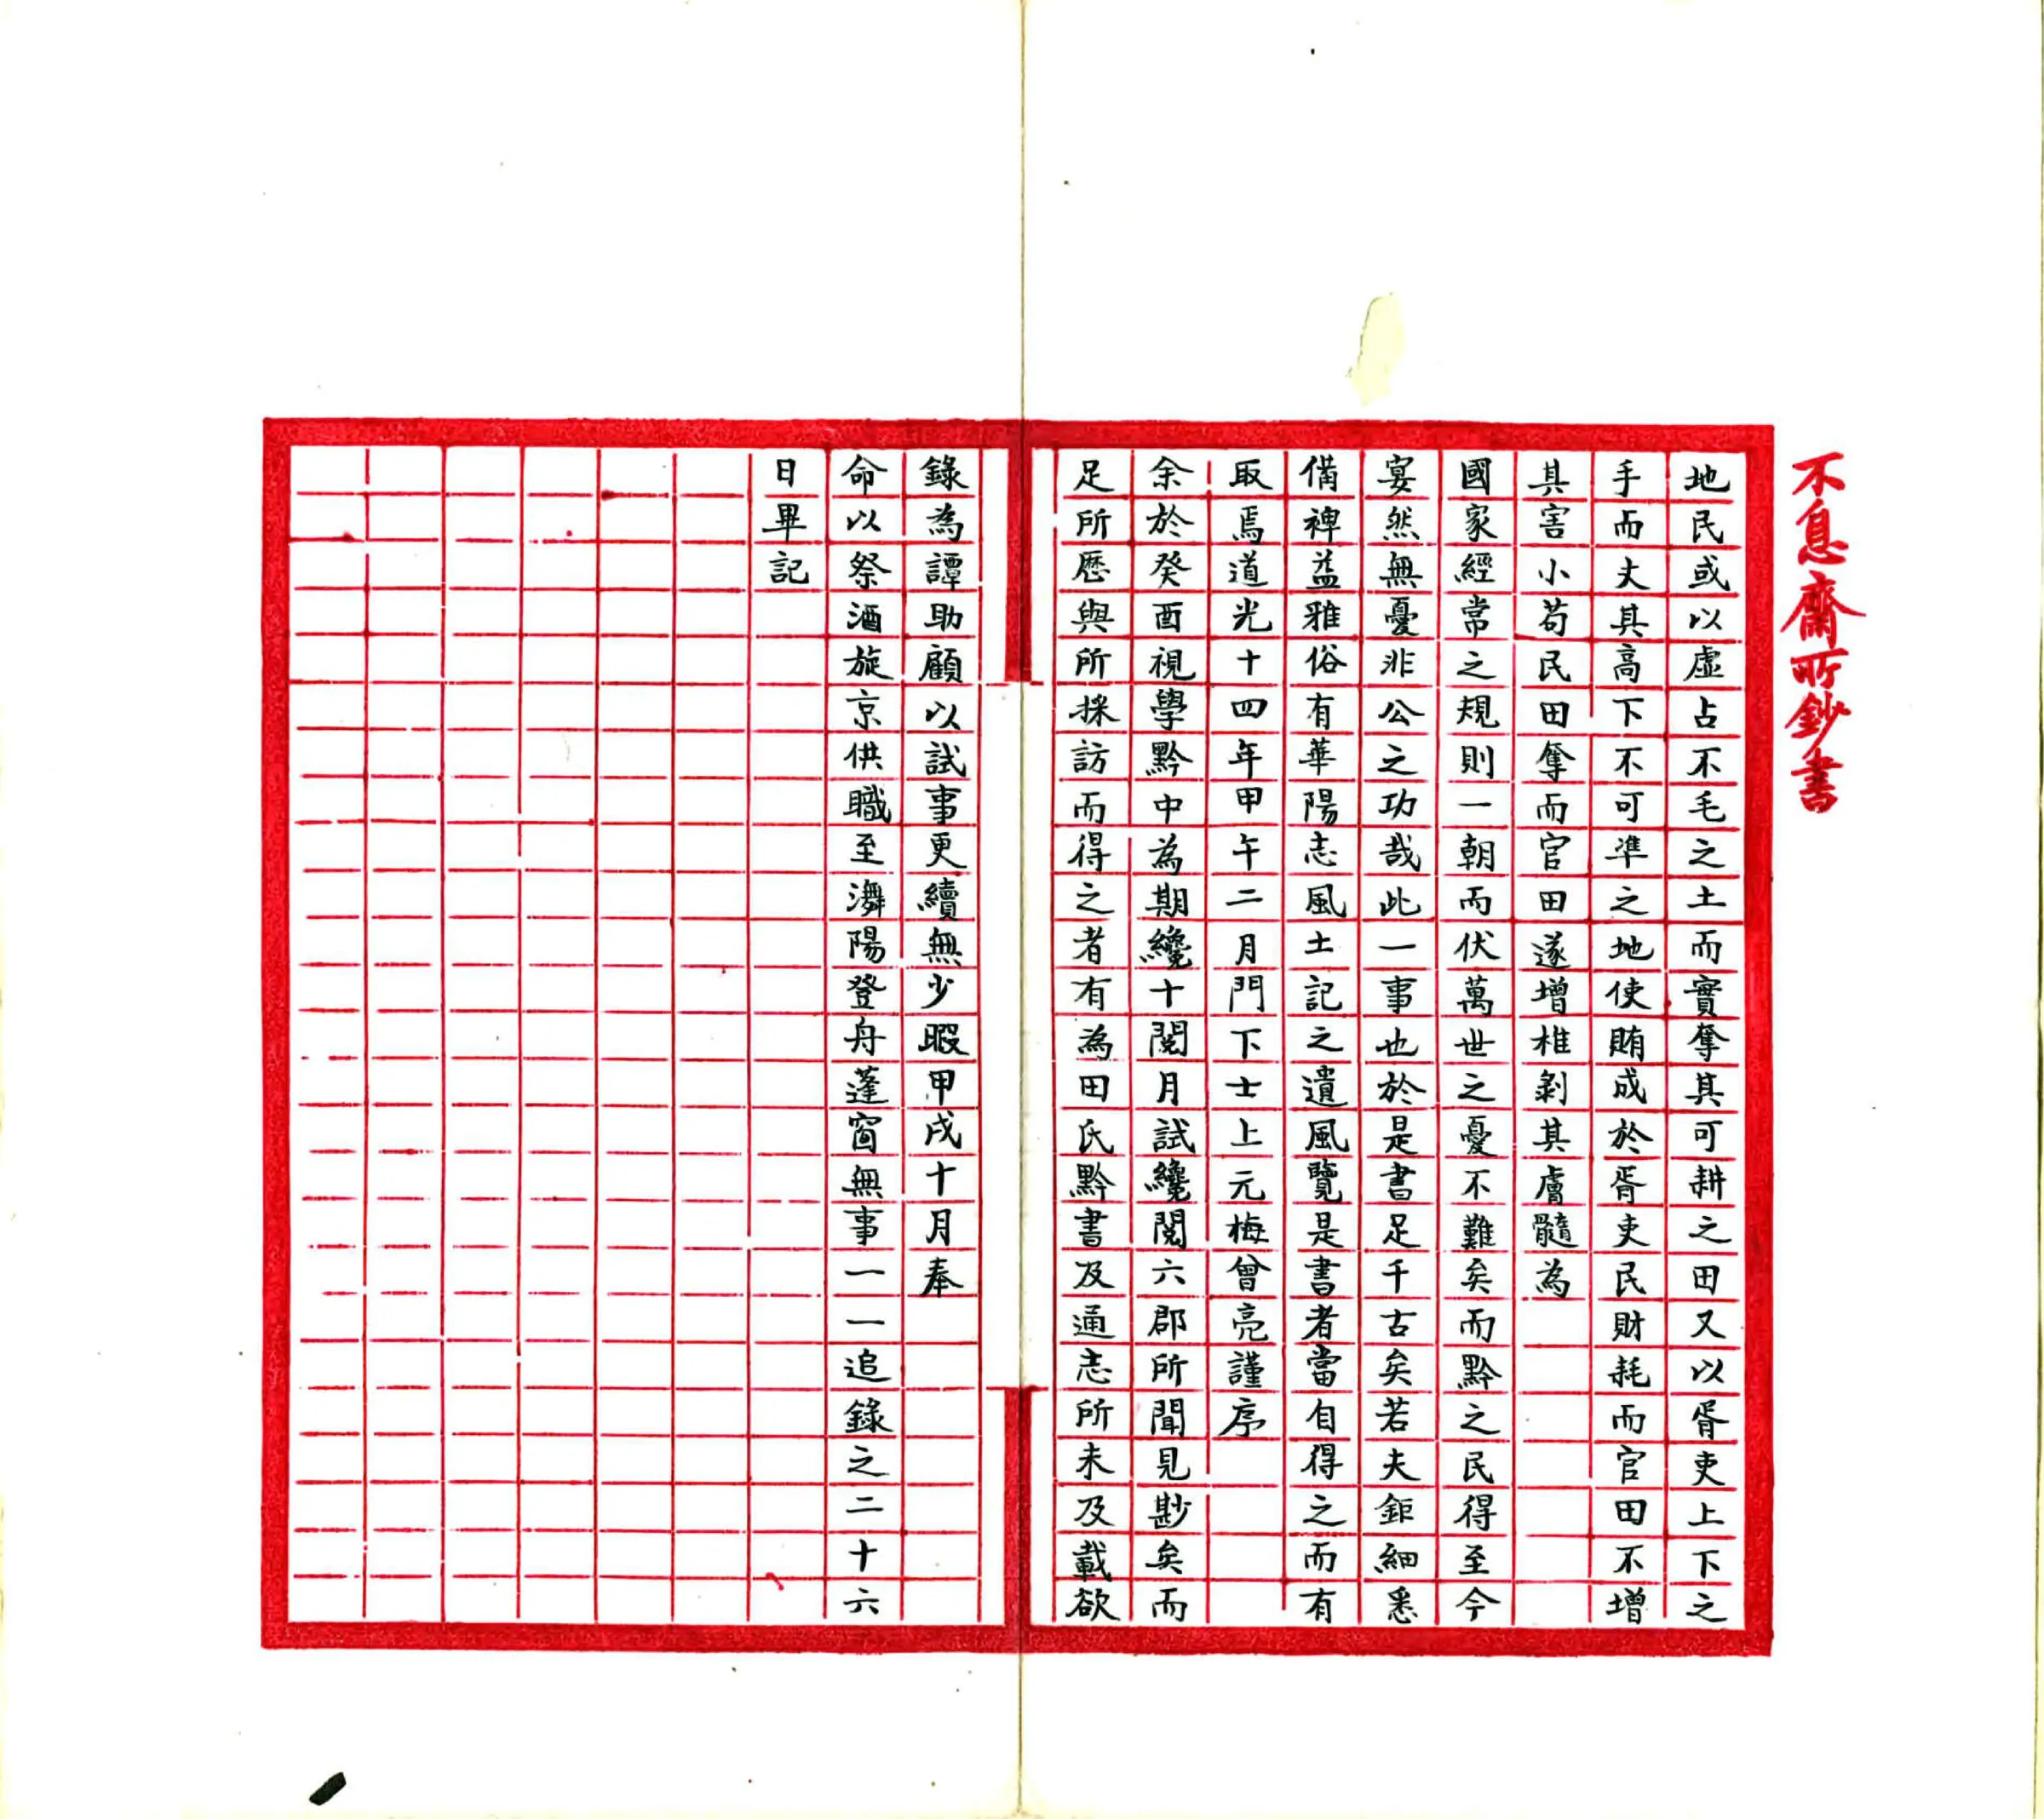 不息齋所鈔書
地民或以虛占不毛之土而實奪其可耕之田又以胥吏上下之
手而丈其高下不可準之地使賄成於胥吏民財耗而官田不增
其害小苟民田奪而官田遂增椎剝其膚髓為
國家經常之規則一朝而伏萬世之憂不難矣而黔之民得至今
宴然無憂非公之功哉此一事也於是書足千古矣若夫鉅細悉
備裨益雅俗有華陽志風土記之遺風覽是書者當自得之而有
取焉道光十四年甲午二月門下士上元梅曾亮謹序
余於癸酉視學黔中為期纔十閱月試纔閱六郡所聞見尠矣而
足所歷與所採訪而得之者有為田氏黔書及通志所未及載欲
錄為譚助顧以試事更續無少暇甲戌十月奉
命以祭酒旋京供職至潕陽登舟蓬窗無事一一追錄之二十六
日畢記